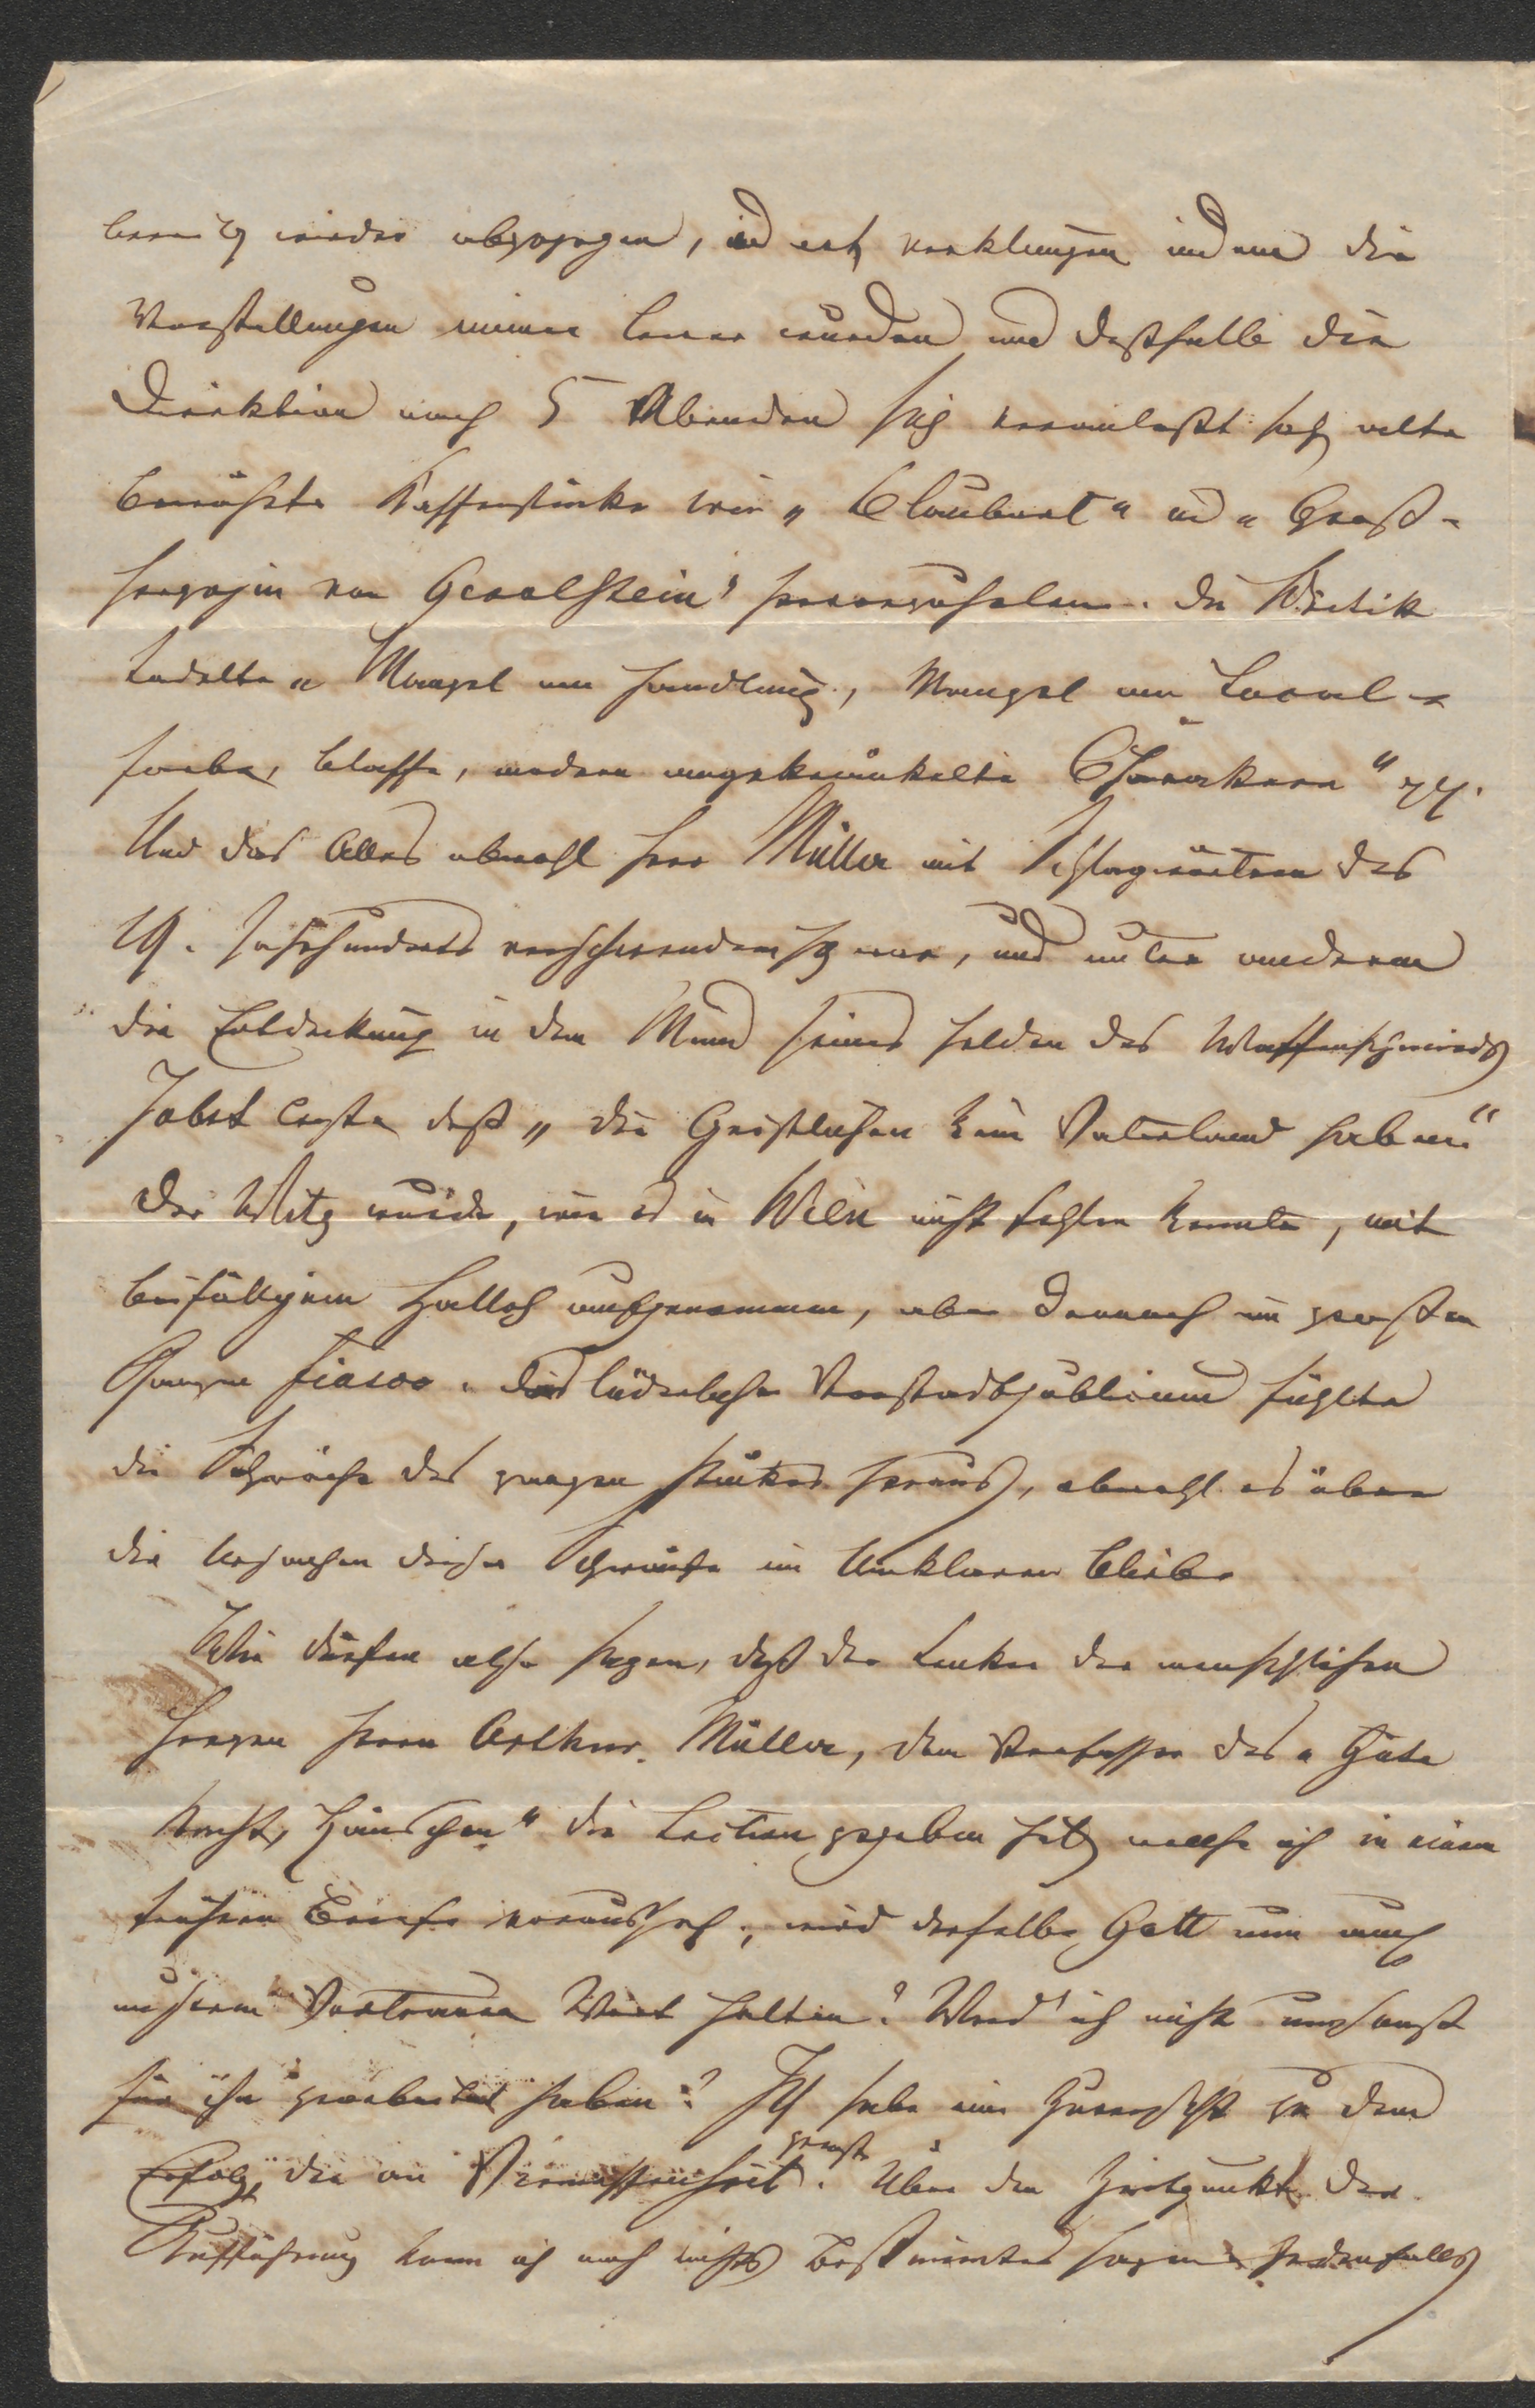 bereits wieder abgezogen, id est, verklungen indem die
Vorstellungen immer leerer wurden und desshalb die
Direktion nach 5 Abenden sich veranlaßt sah alte
bewährte Kassenstücke wie „Blaubart" und „Groß-
herzogin von Gerolstein" hervorzuholen. Die Kritik
tadelte „Mangel an Handlung, Mangel an Local-
farbe, blasse, modern angekränkelte Charaktere"
Und das Alles obwohl Herr Müller mit Schlagwörtern des
19. Jahrhunderts verschwenderisch war, und unter anderem
die Entdeckung in den Mund seines Helden des Waffenschmieds
Jobst legte daß „die Geistlichen kein Vaterland haben"
Der Witz wurde, wie es in Wien nicht fehlen konnte, mit
beifälligem Halloh aufgenommen, aber dennoch im großen
Ganzen fiasco. Das lüderliche Vorstadtpublicum fühlte
die Schwäche des ganzen Stückes heraus, obwohl es über
die Ursachen dieser Schwäche im Unklaren bliebe
Wir dürfen also sagen, daß der Lenker der menschlichen
Herzen Herrn Arthur Müller, dem Verfasser des „Gute
Nacht, Hänschen" die Lection gegeben hat, welche ich in einem
frühern Briefe voraussah; wird derselbe Gott nun auch
unserem Vertrauen Wort halten? Werd' ich nicht umsonst
für ihn gearbeitet haben? Ich habe eine Zuversicht zu dem
Erfolg, die an Vermessenheit grenzt. Über den Zeitpunkt der
Aufführung kann ich noch nichts Bestimmtes sagen. Jedenfalls